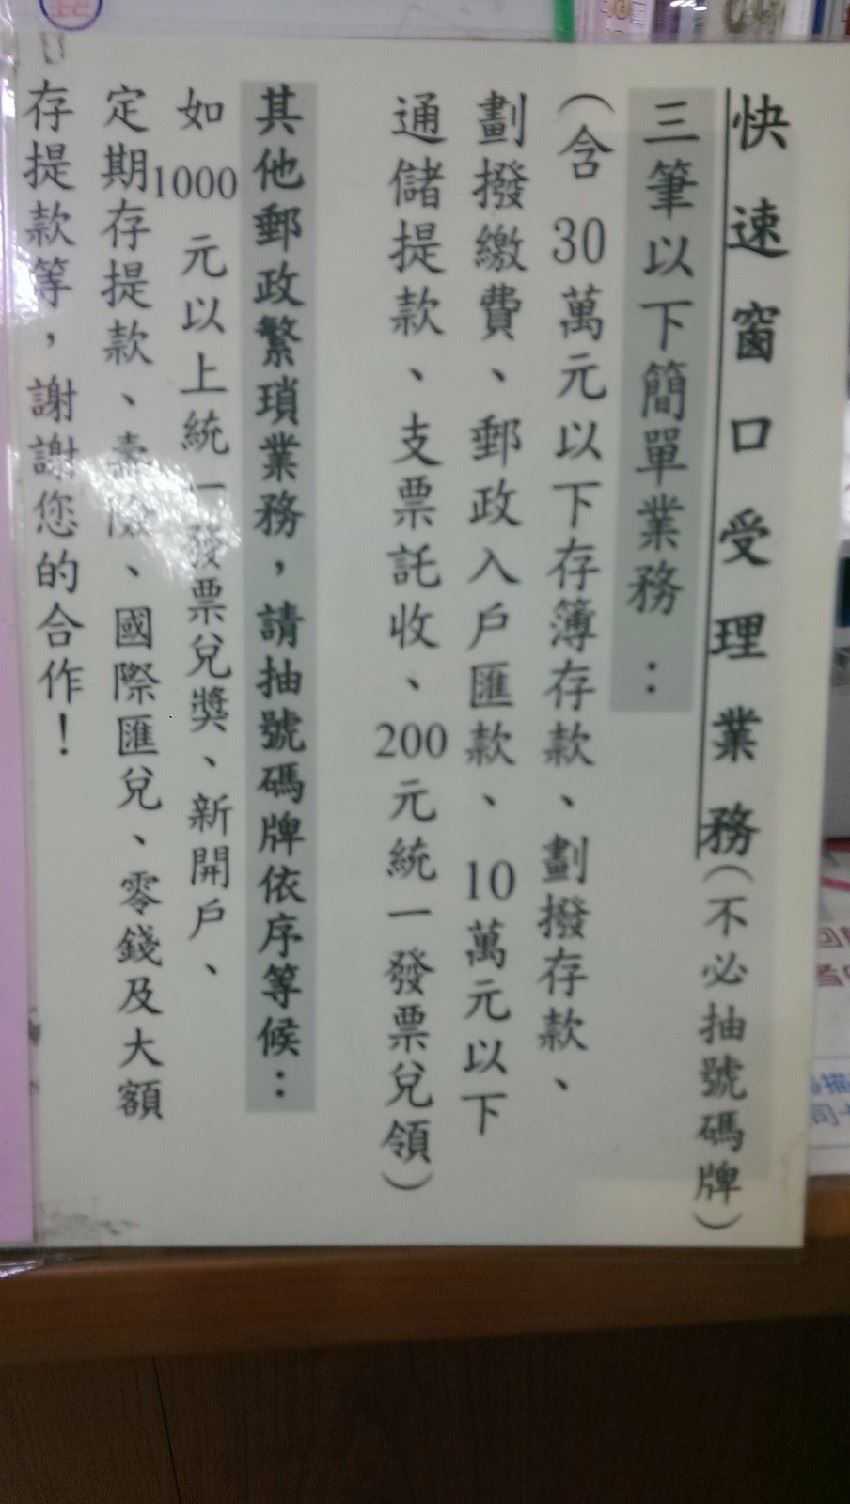 快速窗口受理業務(不必抽號碼牌)
三筆以下簡單業務:
(含30萬元以下存簿存款、劃撥存款、
劃撥繳費、郵政入戶匯款、10萬元以下
通儲提款、支票託收、200元統一發票兌領)
其他郵政繁瑣業務,請抽號碼牌依序等候:
如1000元以上統一發票兌獎、新開戶、
定期存提款、壽險、國際匯兌、零錢及大額
存提款等,謝謝您的合作!